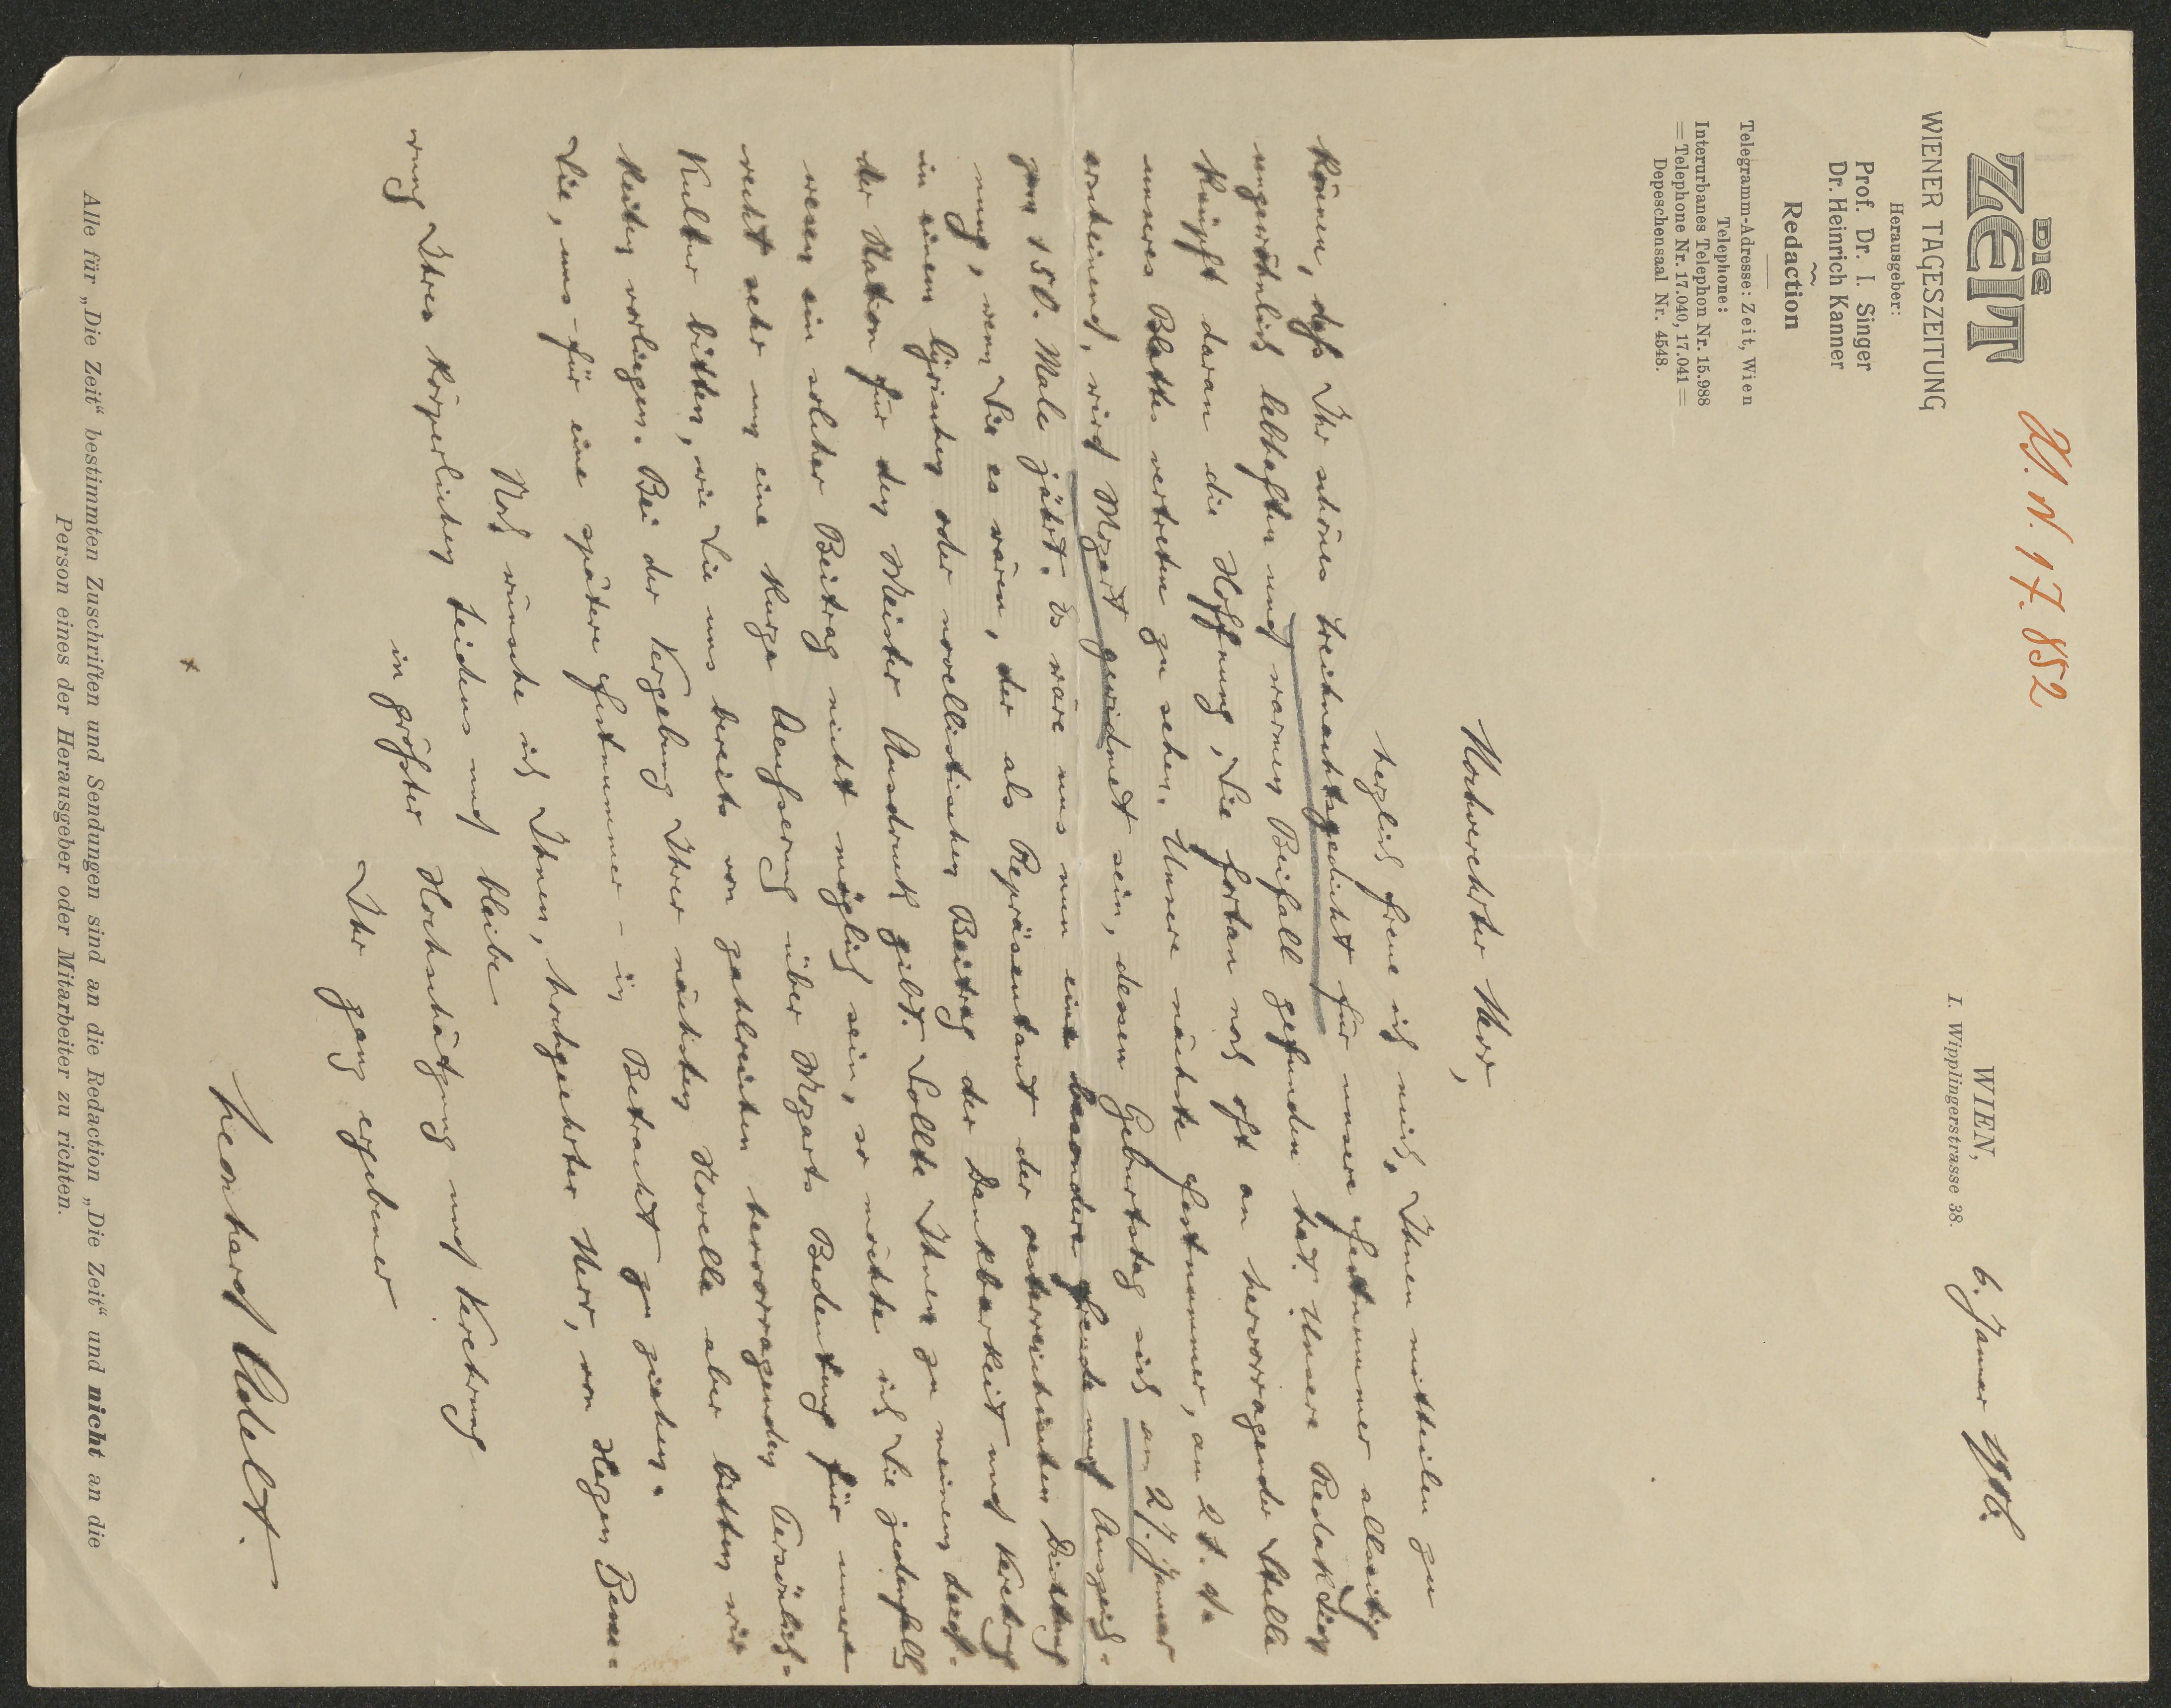 H. N. 17.852
DIE
ZEIT
WIENER TAGESZEITUNG
Herausgeber:
Prof. Dr. I. Singer
Dr. Heinrich Kanner
Redaction
Telegramm-Adresse: Zeit, Wien
Telephone:
Interurbanes Telephon Nr. 15.988
Telephone Nr. 17.040, 17.041
Depeschensaal Nr. 4548.
WIEN, 6. Januar 1906.
I. Wipplingerstrasse 38.
Hochverehrter Herr,
herzlich freue ich mich, Ihnen mitteilen zu
können, dass Ihr schönes Weihnachtsgedicht für unsere Festnummer allseitig
ungewöhnlich lebhaften und warmen Beifall gefunden hat. Unsere Redaktion
knüpft daran die Hoffnung, Sie fortan noch oft an hervorragender Stelle
unseres Blattes vertreten zu sehen. Unsere nächste Festnummer, am
erscheinend, wird Mozart gewidmet sein, dessen Geburtstag sich am 27. Januar
zum 150. Male jährt. Es wäre uns nun eine besondere Freude und Auszeich-
nung, wenn Sie es wären, der als Repräsentant der oesterreichischen Dichtung
in einem lyrischen oder novellistischen Beitrag der Dankbarkeit und Verehrung
der Nation für den Meister Ausdruck gibt. Sollte Ihnen zu meinem
wesen ein solcher Beitrag nicht möglich sein, so möchte ich Sie jedenfalls
recht sehr um eine kurze Aeusserung über Mozarts Bedeutung für unsere
Kultur bitten, wie Sie uns bereits von zahlreichen hervorragenden Persönlich-
keiten vorliegen. Bei der Vergebung Ihrer nächsten Novelle aber bitten wir
Sie, uns – für eine spätere Festnummer – in Betracht zu ziehen.
Noch wünsche ich Ihnen, hochgeehrter Herr, von Herzen Besse-
rung Ihres körperlichen Leidens und bleibe
in größter Hochschätzung und Verehrung
Ihr ganz ergebener
Leonhard Adelt.
Alle für „Die Zeit“ bestimmten Zuschriften und Sendungen sind an die Redaction „Die Zeit“ und nicht an die
Person eines der Herausgeber oder Mitarbeiter zu richten.